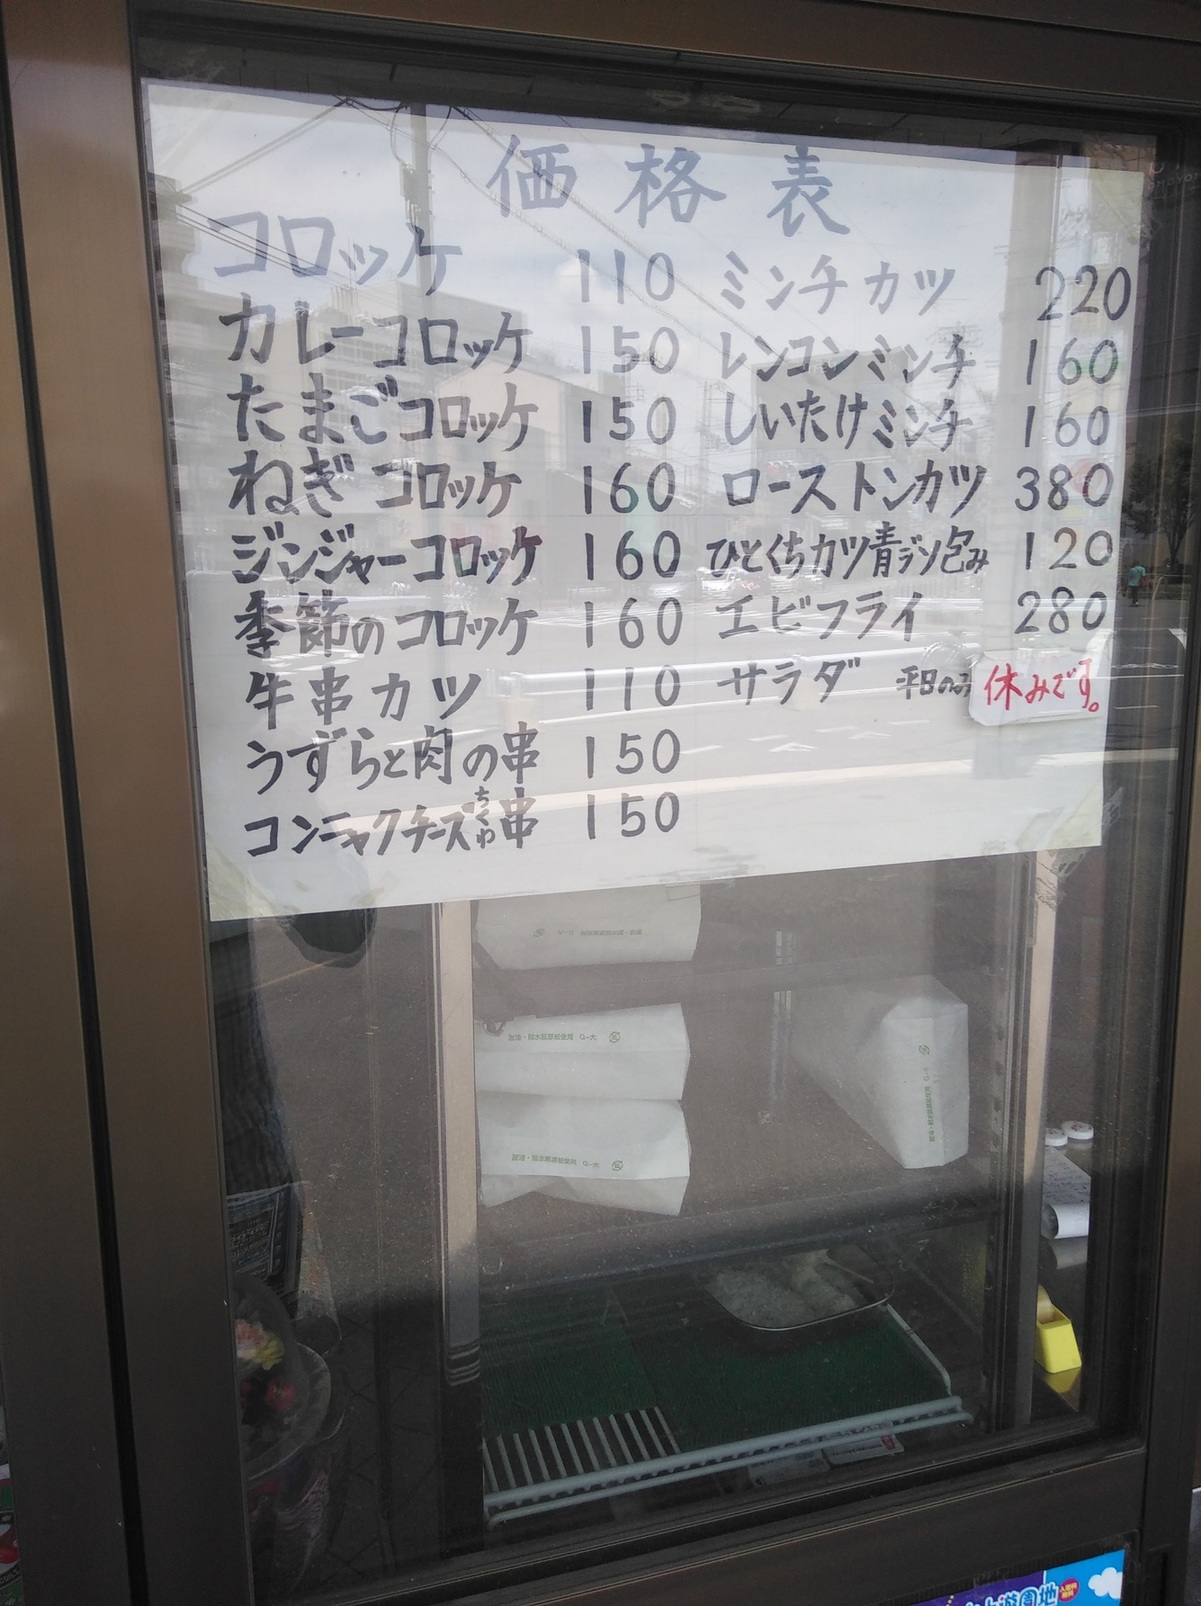 価格表
コロッケ 110
カレーコロッケ 150
たまごコロッケ 150
ねぎコロッケ 160
ジンジャーコロッケ 160
季節のコロッケ 160
牛串カツ 110
うずらと肉の串 150
コンニャクチーズちくわ串 150
ミンチカツ 220
レンコンミンチ 160
しいたけミンチ 160
ローストンカツ 380
ひとくちカツ青ジソ包み 120
エビフライ 280
サラダ 平日のみ 休みです。
遊園地